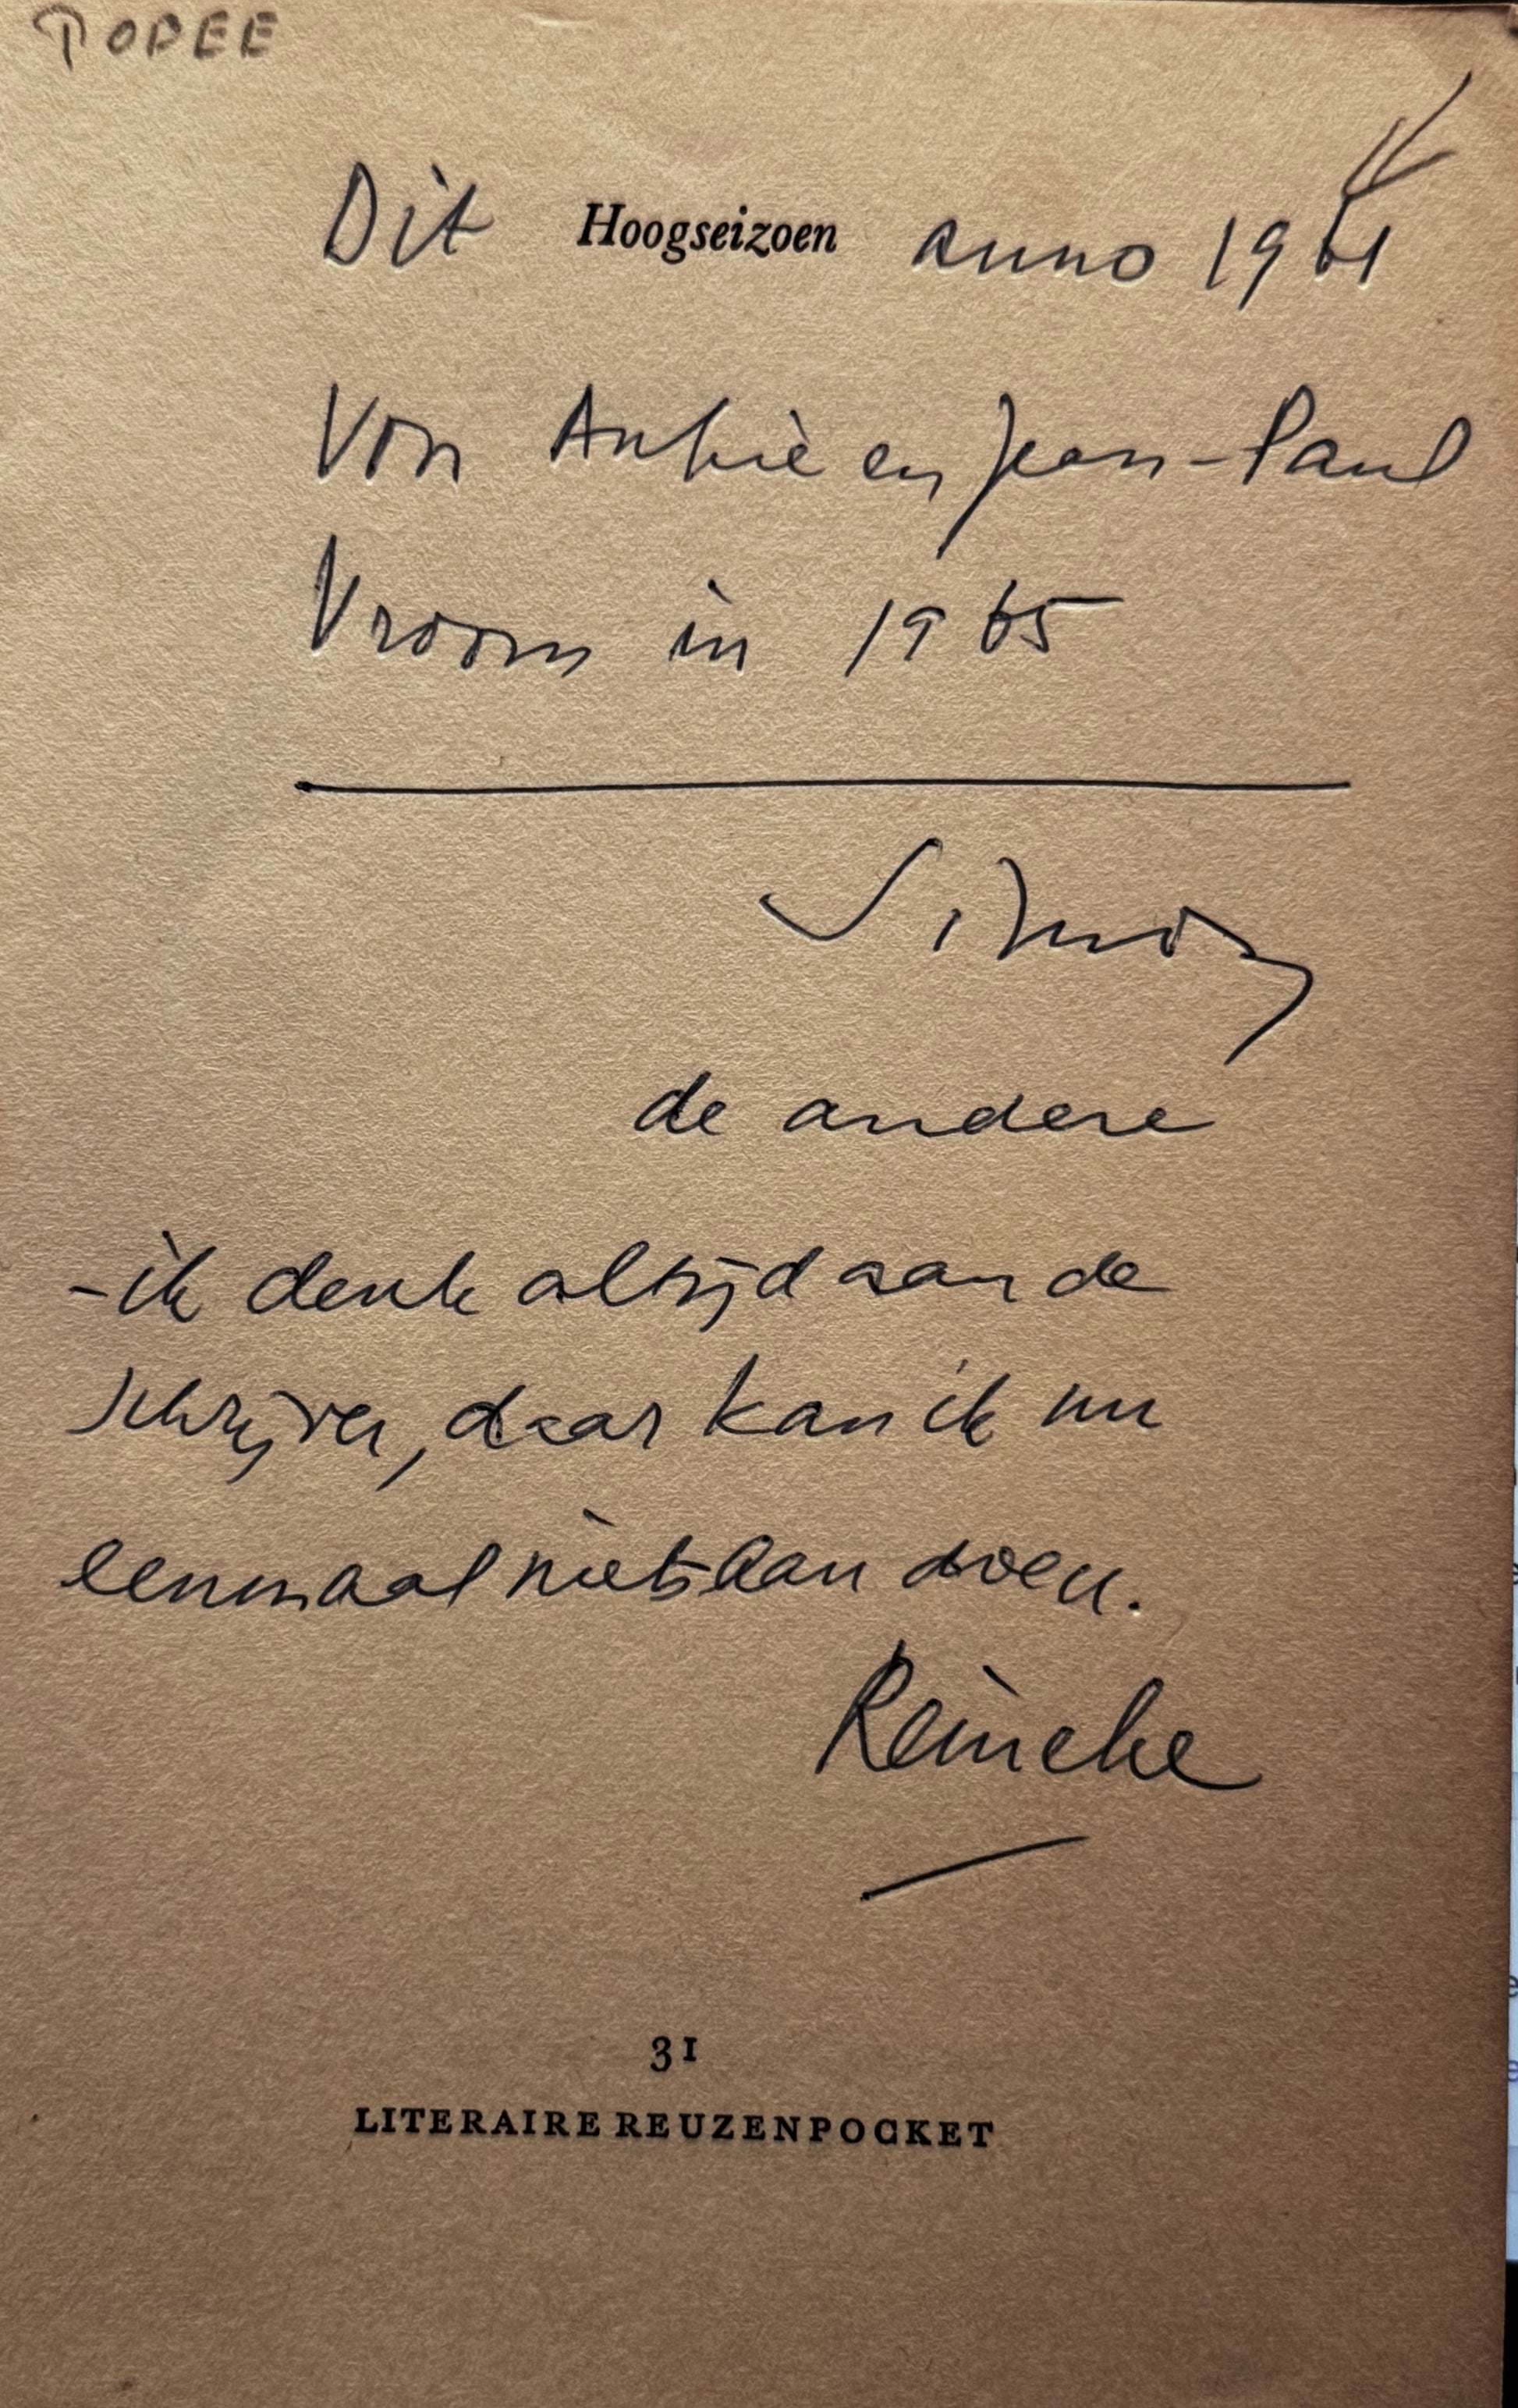 TODEE
Dit Hoogseizoen anno 1961
Von Ankie en Jean-Paul
Vroom in 1965
Simon
de andere
-ik denk altijd aan de
schrijver, daar kan ik nu
eenmaal niets aan doen.
Reineke
31
LITERAIRE REUZENPOCKET